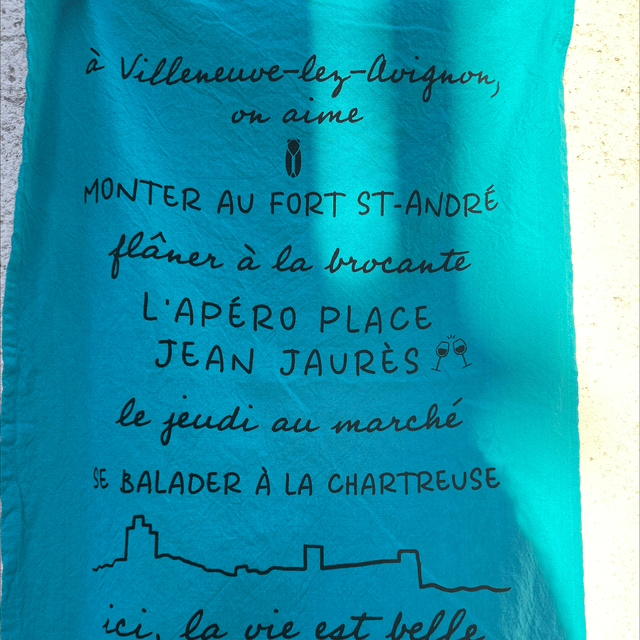 à Villeneuve-lez-Avignon,
on aime
MONTER AU FORT ST-ANDRÉ
flâner à la brocante
L'APÉRO PLACE
JEAN JAURÈS
le jeudi au marché
SE BALADER À LA CHARTREUSE
ici, la vie est belle